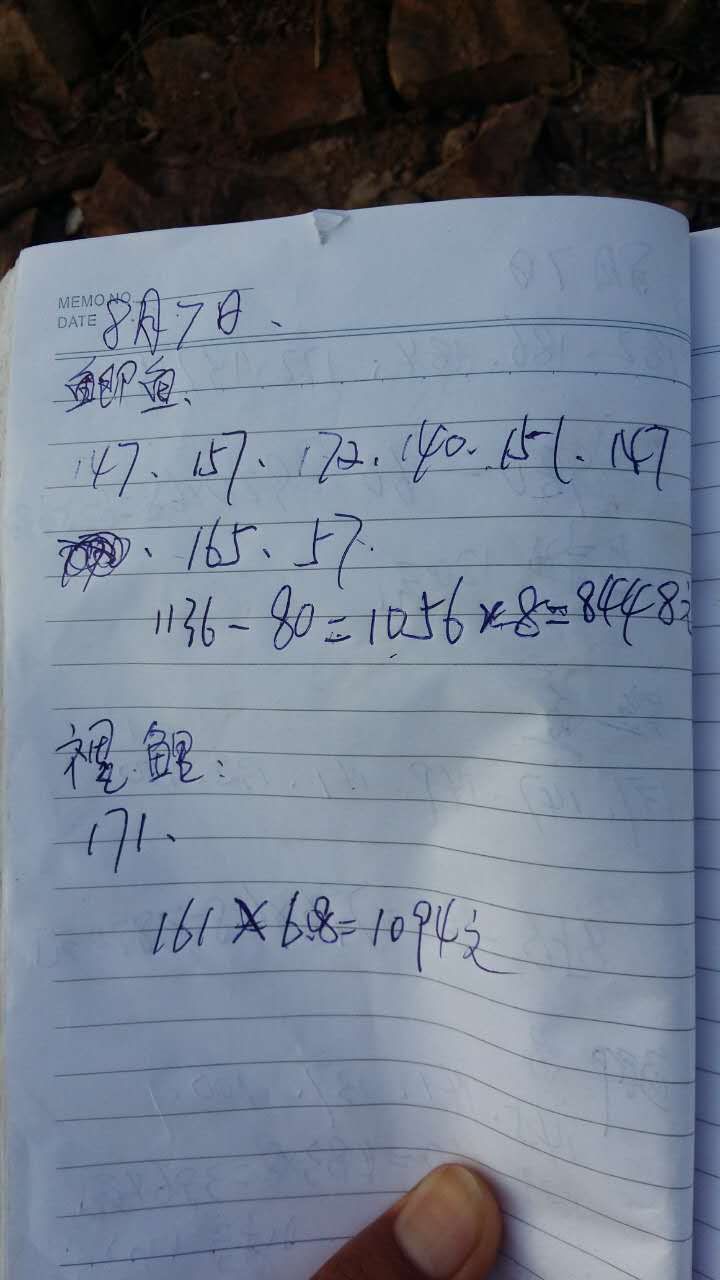 MEMO NO.
DATE 8月7日、
鲫鱼、
147、157、172、140、151、147
、165、57.
1136-80=1056×8=8448元
禮鲤:
171、
161×6.8=1094元